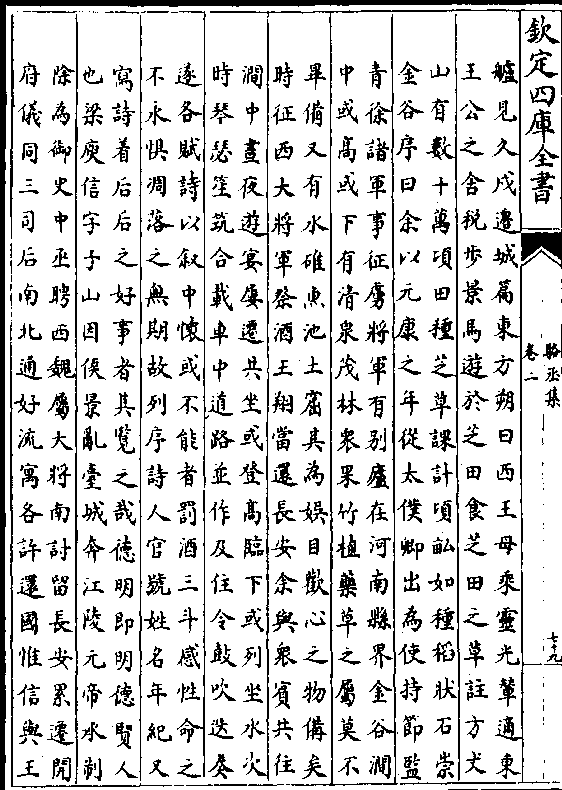 欽定四庫全書
駱丞集
卷二
七十九
艫見久戍邊城篇東方朔曰西王母乘靈光輦適東
王公之舍税歩景馬遊於芝田食芝田之草註方丈
山有數十萬頃田種芝草課計頃畝如種稻狀石崇
金谷序曰余以元康之年從太僕卿出為使持節監
青徐諸軍事征虜將軍有别廬在河南縣界金谷澗
中或高或下有清泉茂林衆果竹植藥草之屬莫不
畢備又有水碓魚池土窟其為娱目歡心之物備矣
時征西大將軍祭酒王翔當還長安余與衆賓共往
澗中晝夜遊宴屢遷共坐或登高臨下或列坐水次
時琴瑟笙筑合載車中道路並作及住令鼓吹迭奏
遂各賦詩以叙中懷或不能者罰酒三斗感性命之
不永惧凋落之無期故列序詩人官號姓名年紀又
寫詩着后后之好事者其覽之哉德明即明德賢人
也梁庾信字子山因侯景亂臺城奔江陵元帝水制
除為御史中丞聘西魏屬大將南討留長安累遷開
府儀同三司后南北通好流寓各許還國惟信與王